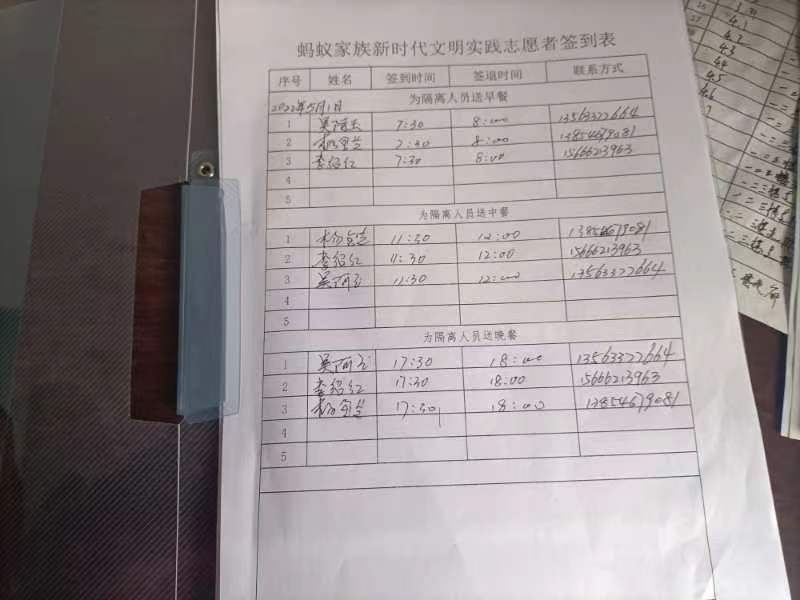 蚂蚁家族新时代文明实践志愿者签到表
序号 姓名 签到时间 签退时间 联系方式
2022年5月1日 为隔离人员送早餐
1 7:30 8:00 13563322664
2 7:30 8:00 13854679081
3 李绍红 7:30 8:00 15666213963
4
5
为隔离人员送中餐
1 11:30 12:00 13854679081
2 李绍红 11:30 12:00 15666213963
3 11:30 12:00 13563322664
4
5
为隔离人员送晚餐
1 17:30 18:00 13563322664
2 李绍红 17:30 18:00 15666213963
3 17:30 18:00 13854679081
4
5
4.1
4.2
4.3
4.4
4.5
4.6